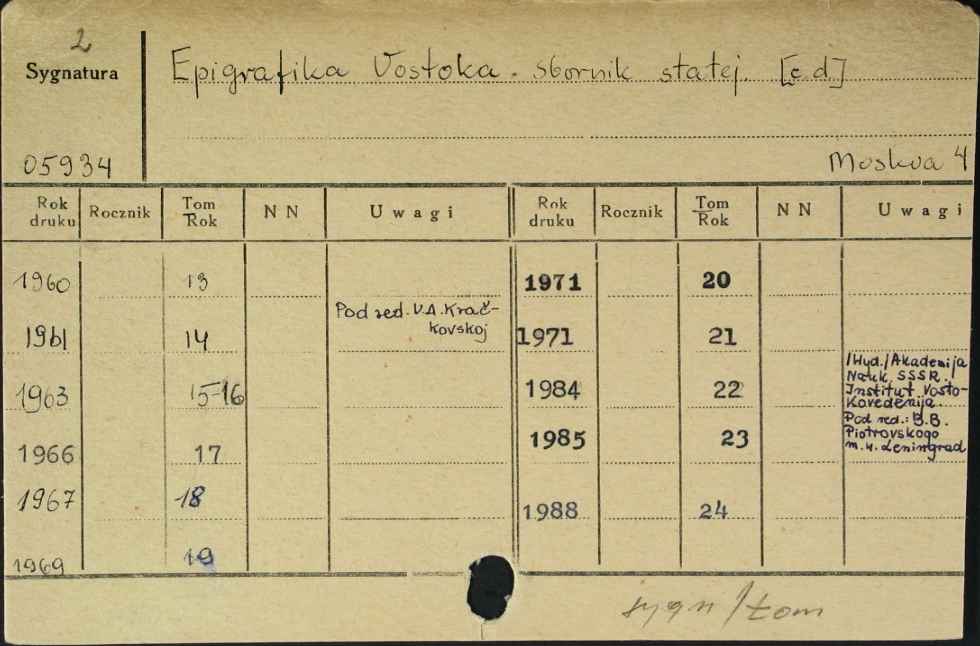 2
Sygnatura
Epigrafika Vostoka. sbornik statej. [c d]
05934
Moskva 4
Rok druku Rocznik Tom Rok N N Uwagi Rok druku Rocznik Tom Rok N N Uwagi
1960 13 1971 20
Pod red. V.A. Krač-
kovskoj
1961 14 1971 21
/Wyd./Akademija
Nauk SSSR.
Institut Vosto-
kovedenija.
1963 15-16 1984 22
Pod red.: B.B.
Piotrovskogo
m.w. Leningrad
1966 17 1985 23
1967 18 1988 24
1969 19
sygn/tom